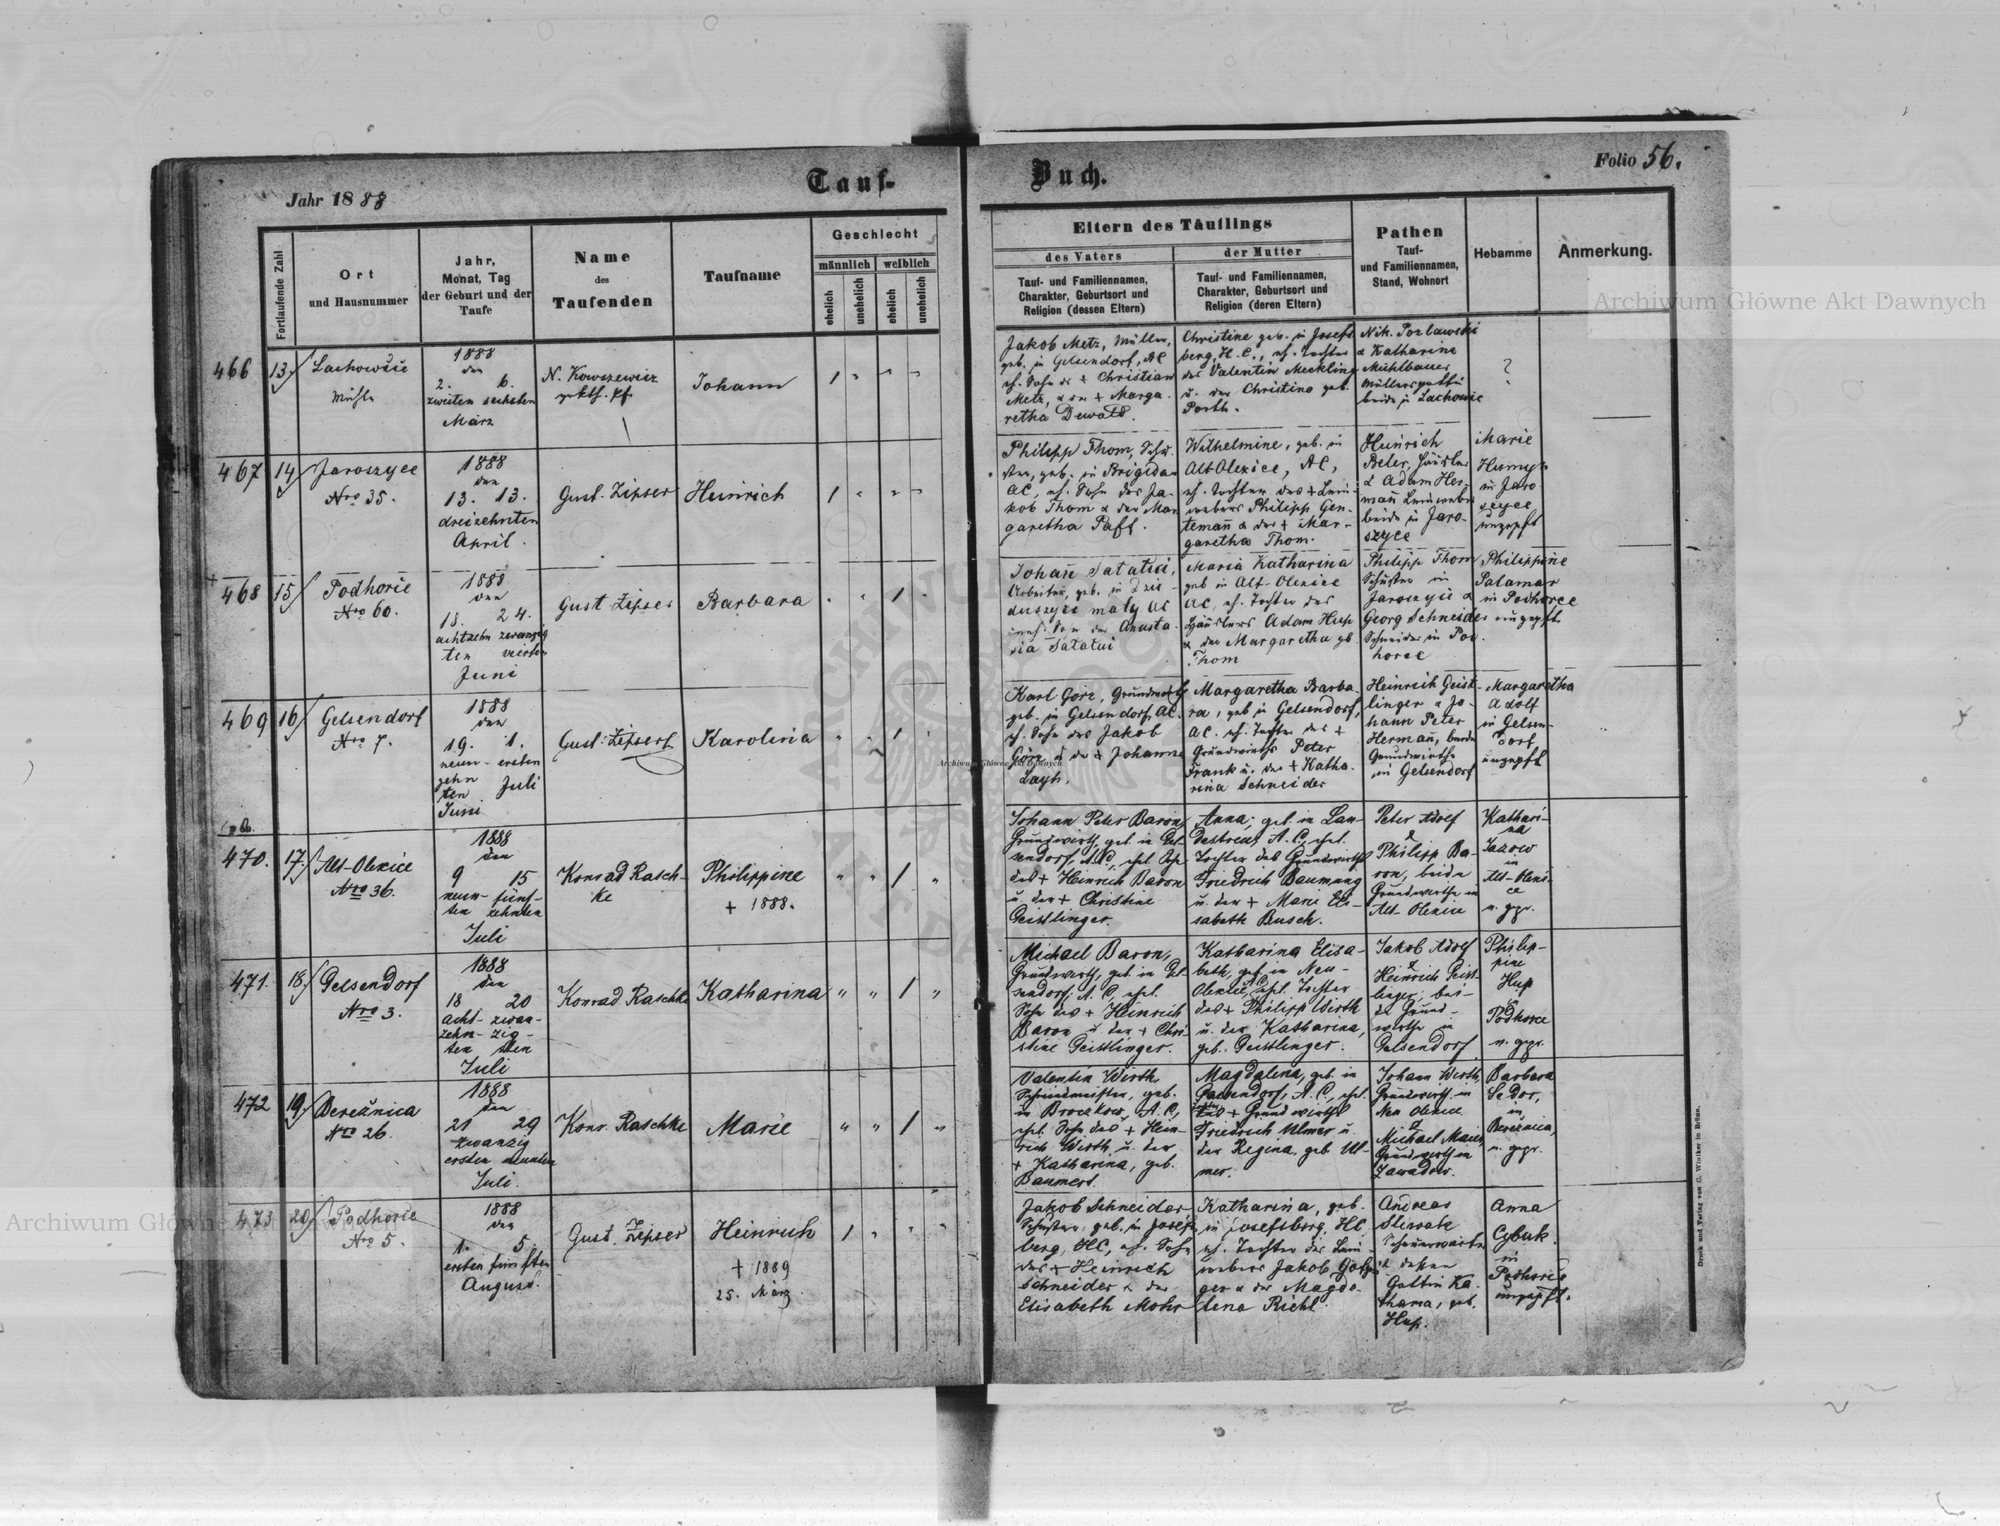 Taufbuch.
Jahr 1888
Folio 56.
Fortlaufende Zahl
Ort
und Hausnummer
Jahr,
Monat, Tag
der Geburt und der
Taufe
Name
des
Taufenden
Taufname
Geschlecht
männlich weiblich
ehelich
unehelich
ehelich
unehelich
Eltern des Täuflings
des Vaters
Tauf- und Familiennamen,
Charakter, Geburtsort und
Religion (dessen Eltern)
der Mutter
Tauf- und Familiennamen,
Charakter, Geburtsort und
Religion (deren Eltern)
Pathen
Tauf-
und Familiennamen,
Stand, Wohnort
Hebamme
Anmerkung.
466 13
Mühle
1888
den
2. 6.
zweiten sechsten
März
Johann
Jakob Metz, Müller,
geb. in Gelsendorf, AC
eh. Sohn des + Christian
Metz, u der + Marga-
retha Dewald.
Christine geb. in Josefs
berg, H.C., eh. Tochter
des Valentin Meckling
u. der Christina geb.
Porth.
& Katharina
Mühlbauer
?
467 14
Jaroszyce
Nro 35.
1888
den
13. 13.
dreizehnten
April.
Gust. Zipser
Heinrich
Philipp Thom,
geb. in Brigidau
AC, eh. Sohn des Ja-
kob Thom & der Mar
garetha Paff.
Wilhelmine, geb. in
Alt Olexice, AC,
eh. Tochter des + Lein-
webers Philipp Gen-
teman̄ & der + Mar-
garetha Thom.
Heinrich
& Adam Her-
man̄ Leinweber
beide in Jaro-
szyce
Marie
in Jaro-
szyce
ungepft
468 15
Podhorie
Nro 60.
1888
den
18. 24.
achtzehn zwanzig
ten vierten
Juni
Gust Zipser
Barbara
Johan̄ Tatatui,
Arbeiter, geb. in Dzie
duszyce maly AC
uneh. Son der Anasta
sia Tatatui
Maria Katharina
geb in Alt-Olexice
AC, eh. Tochter des
Häuslers Adam Hup
& der Margaretha gb
Thom
Philipp Thom
Schuster in
Jaroszyce &
Georg Schneider
Schneider in Pod
horce
Philippine
Palamar
in Podhorce
ungepft.
469 16
Gelsendorf
Nro 7.
1888
den
19. 1.
neun- ersten
zehn
ten Juli
Juni
Gust. Zipser
Karolina
Karl Görz, Grundwirth
geb. in Gelsendorf, AC.
eh. Sohn des Jakob
Görz u der + Johanna
Layh.
Margaretha Barba-
ra, geb in Gelsendorf,
AC. eh. Tochter des +
Grundwirths Peter
Frank u. der + Katha-
rina Schneider
Heinrich Geist-
linger & Jo-
hann Peter
Herman̄, beide
Grundwirthe
in Gelsendorf
Margaretha
Adolf
in Gelsen-
dorf
ungepft
470. 17.
Alt-Olexice
Nro 36.
1888
den
9 15
neun- fünf-
ten zehnten
Juli
Konrad Rasch-
ke
Philippine
+ 1888.
Johann Peter Baron,
Grundwirth, geb. in Gel-
sendorf, A.C., ehel. Sohn
des + Heinrich Baron
u. der + Christine
Geistlinger.
Tochter des Grundwirths
Friedrich Baumung
u. der + Marie Eli-
sabeth Busch.
Peter Adolf
&
Philipp Ba-
ron, beide
Grundwirthe in
Alt-Olexice
Kathari-
na
in
Alt-Olexi-
ce
u. gepr.
471. 18.
Gelsendorf
Nro 3.
1888
den
18 20
acht- zwan-
zehn- zig-
ten sten
Juli
Konrad Raschke
Katharina
Michael Baron,
Grundwirth, geb. in Gel-
sendorf, A.C., ehel.
Sohn des + Heinrich
Baron u. der + Chri-
stine Geistlinger.
Katharina Elisa-
beth, geb. in Neu-
Olexice, A.C., ehel. Tochter
des + Philipp Wirth
u. der Katharina,
geb. Geistlinger.
Jakob Adolf
&
Heinrich Geist-
linger, bei-
de Grund-
wirthe in
Gelsendorf
Philip-
pine
Hup
in
Podhorce
u. gepr.
472 19.
Bereźnica
Nro 26.
1888
den
21 29
zwanzig
ersten neunten
Juli.
Konr. Raschke
Marie
Valentin Wirth,
Schmiedmeister, geb.
in Broczkow, A.C.,
ehel. Sohn des + Hein-
rich Wirth u. der
+ Katharina, geb.
Baumert.
Magdalena, geb. in
Gassendorf, A.C., ehel.
Tochter des + Grundwirths
Friedrich Ulmer u.
der Regina, geb. Ul-
mer.
Johann Wirth,
Grundwirth in
Neu Olexice
&
Michael Maier,
Grundwirth in
Zawadow.
Barbara
Sedor,
in
Bereźnica,
u. gepr.
473 20
Podhorie
Nro 5.
1888
den
1. 5.
ersten fünften
August.
Gust. Zipser
Heinrich
+ 1889
25. März
Jakob Schneider
Schuster, geb. in Josefs
berg, HC, eh. Sohn
des + Heinrich
Schneider & der
Elisabeth Mohr
Katharina, geb.
in Josefsberg, HC
eh. Tochter des Lein-
webers Jakob
ger & der Magda-
lena Riehl.
Andreas
& dessen
Gattin Ka-
tharina, geb.
Hup.
Anna
Cybuk
in
Podhorie
ungepft.
Druck und Verlag von C. Winiker in Brünn.
Archiwum Główne Akt Dawnych
Archiwum Główne Akt Dawnych
Archiwum Główne Akt Dawnych